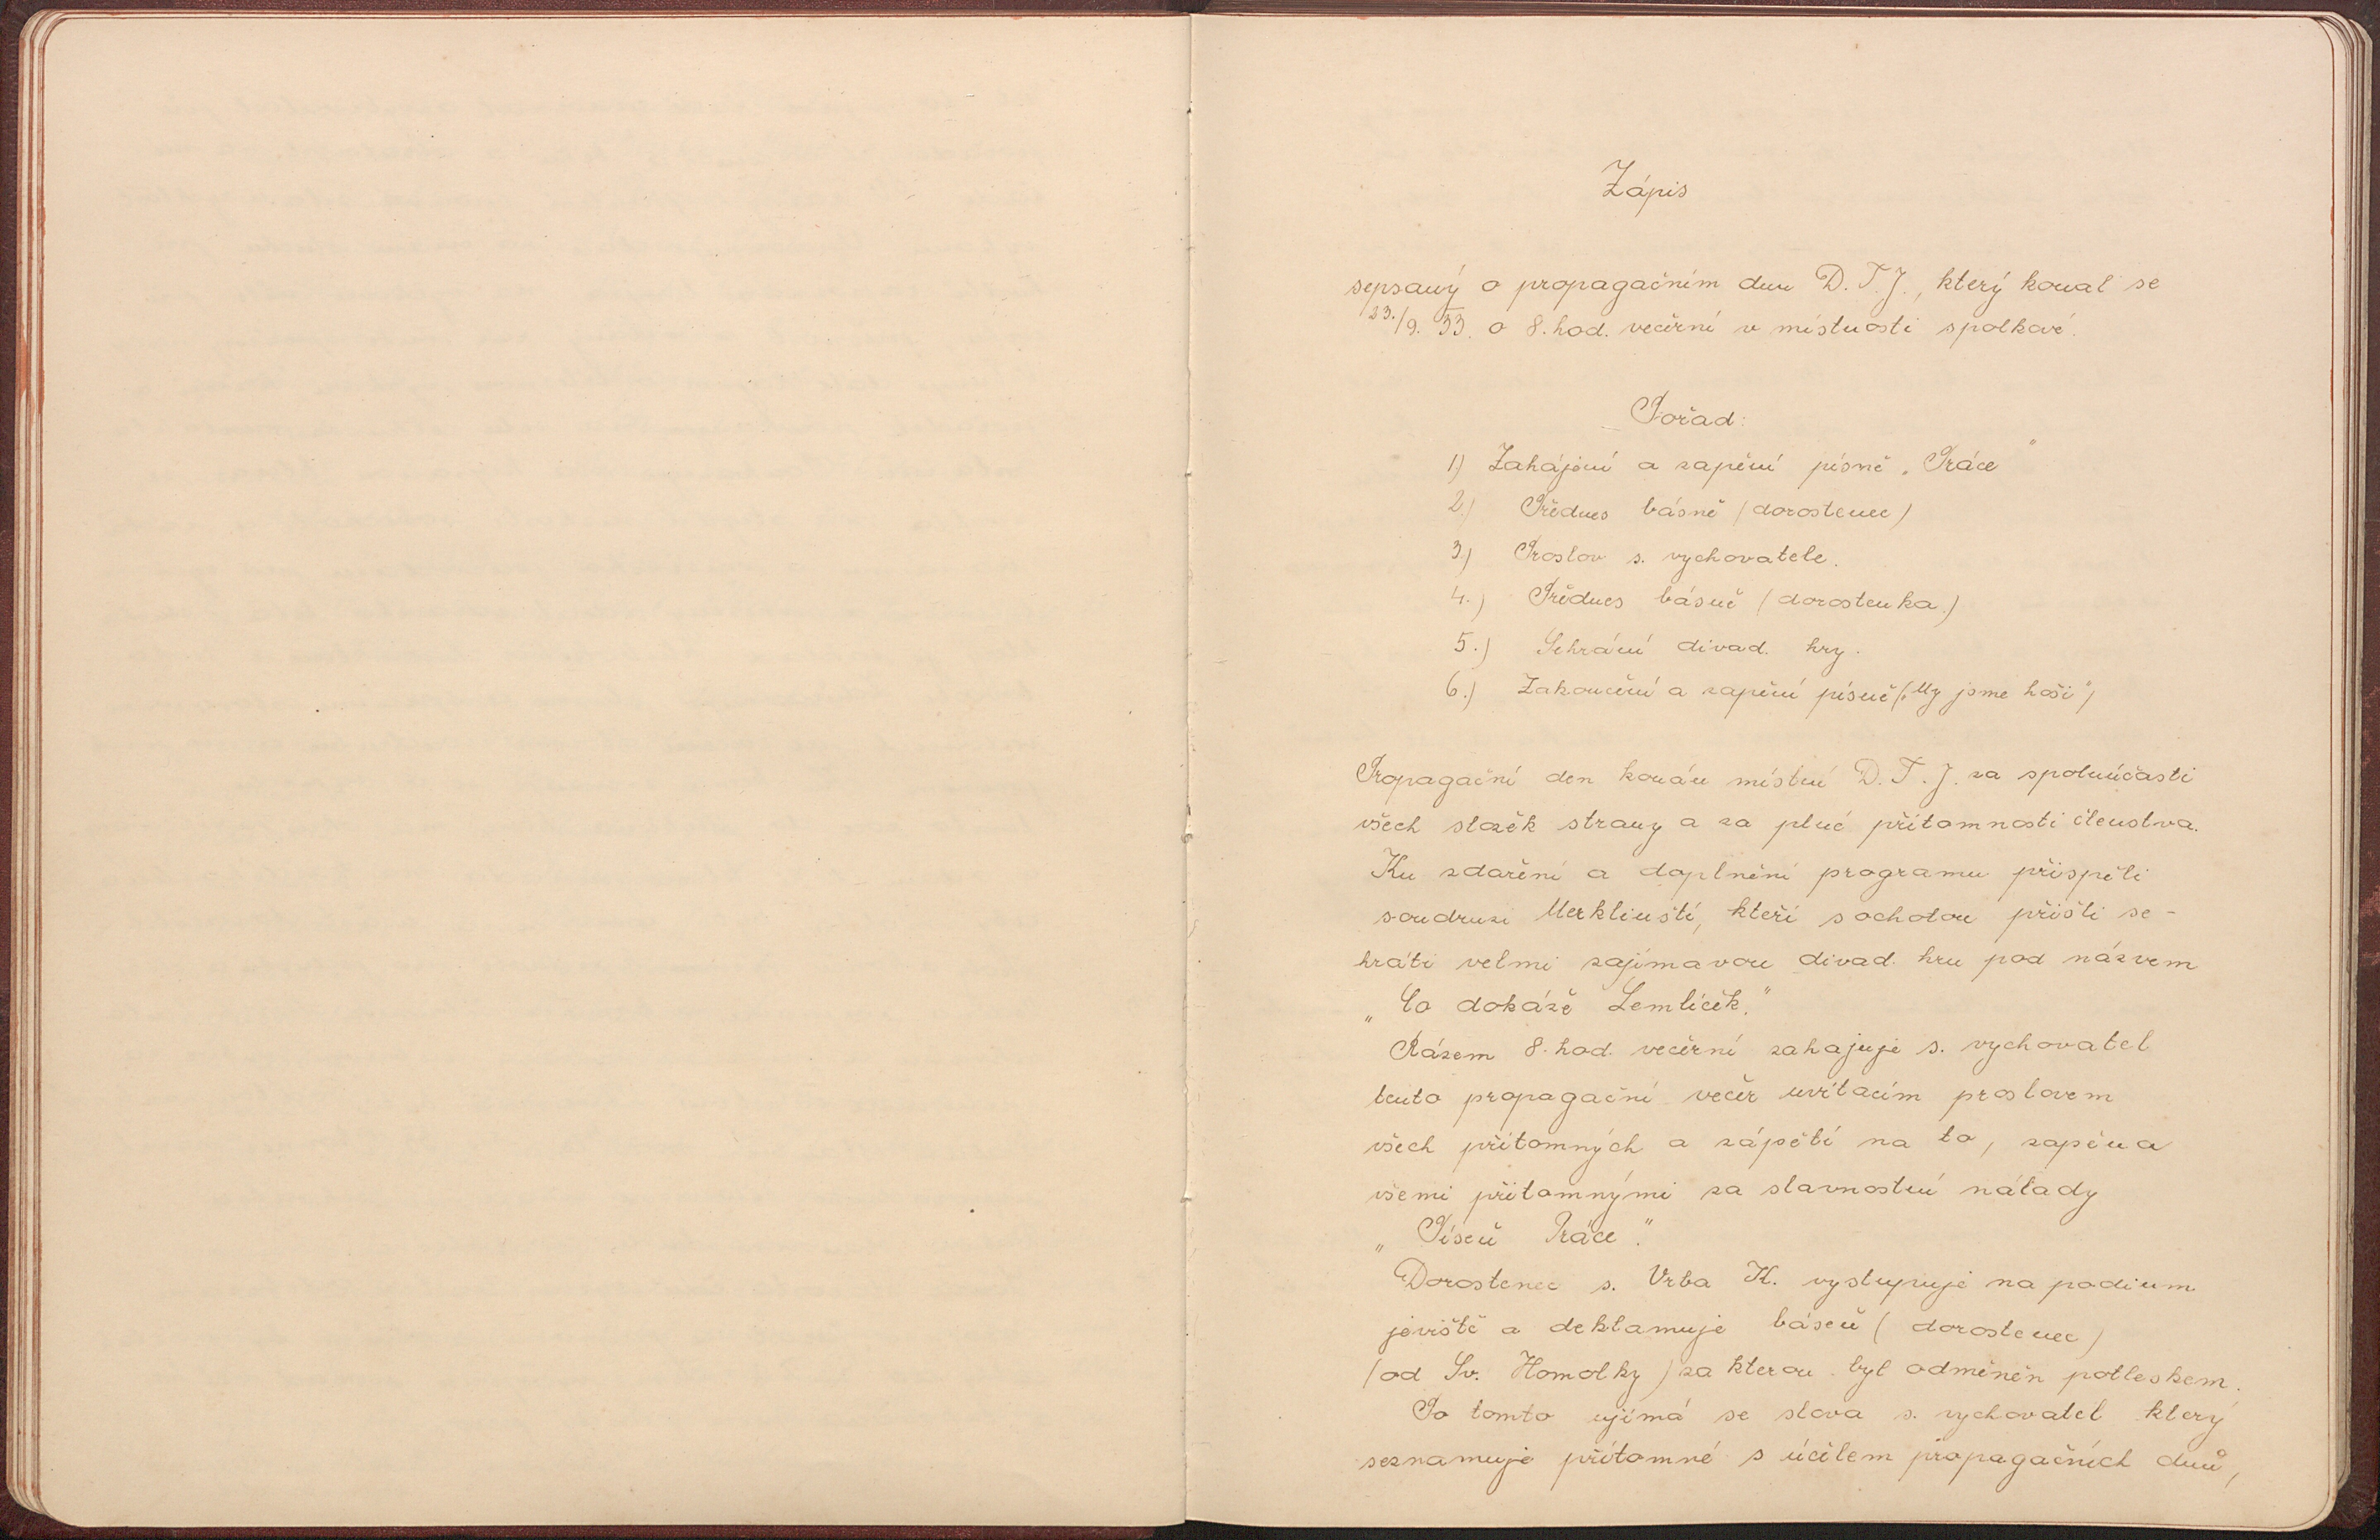 Zápis
sepsaný o propagačním dnu D. T. J., který konal se
23./9. 33. o 8. hod. večerní v místnosti spolkové.
Pořad:
1) Zahájení a zapění písně „Práce"
2.) Přednes básně (dorostenec)
3.) Proslov s. vychovatele.
4.) Přednes básně (dorostenka.)
5.) Sehrání divad. hry.
6.) Zakončení a zapění písně („My jsme hoši")
Propagační den konán místní D. T. J. za spoluúčasti
všech složek strany a za plné přítomnosti členstva.
Ku zdaření a doplnění programu přispěli
soudruzi Merklinští, kteří s ochotou přišli se-
hráti velmi zajímavou divad. hru pod názvem
„Co dokáže Lemlíček."
Rázem 8. hod. večerní zahajuje s. vychovatel
tento propagační večer uvítacím proslovem
všech přítomných a zápětí na to, zapěna
všemi přítomnými za slavnostní nálady
„Píseň Práce".
Dorostenec s. Vrba K. vystupuje na podium
jeviště a deklamuje báseň (dorostenec)
(od Sv. Homolky) za kterou byl odměněn potleskem.
Po tomto ujímá se slova s. vychovatel který
seznamuje přítomné s účelem propagačních dnů,